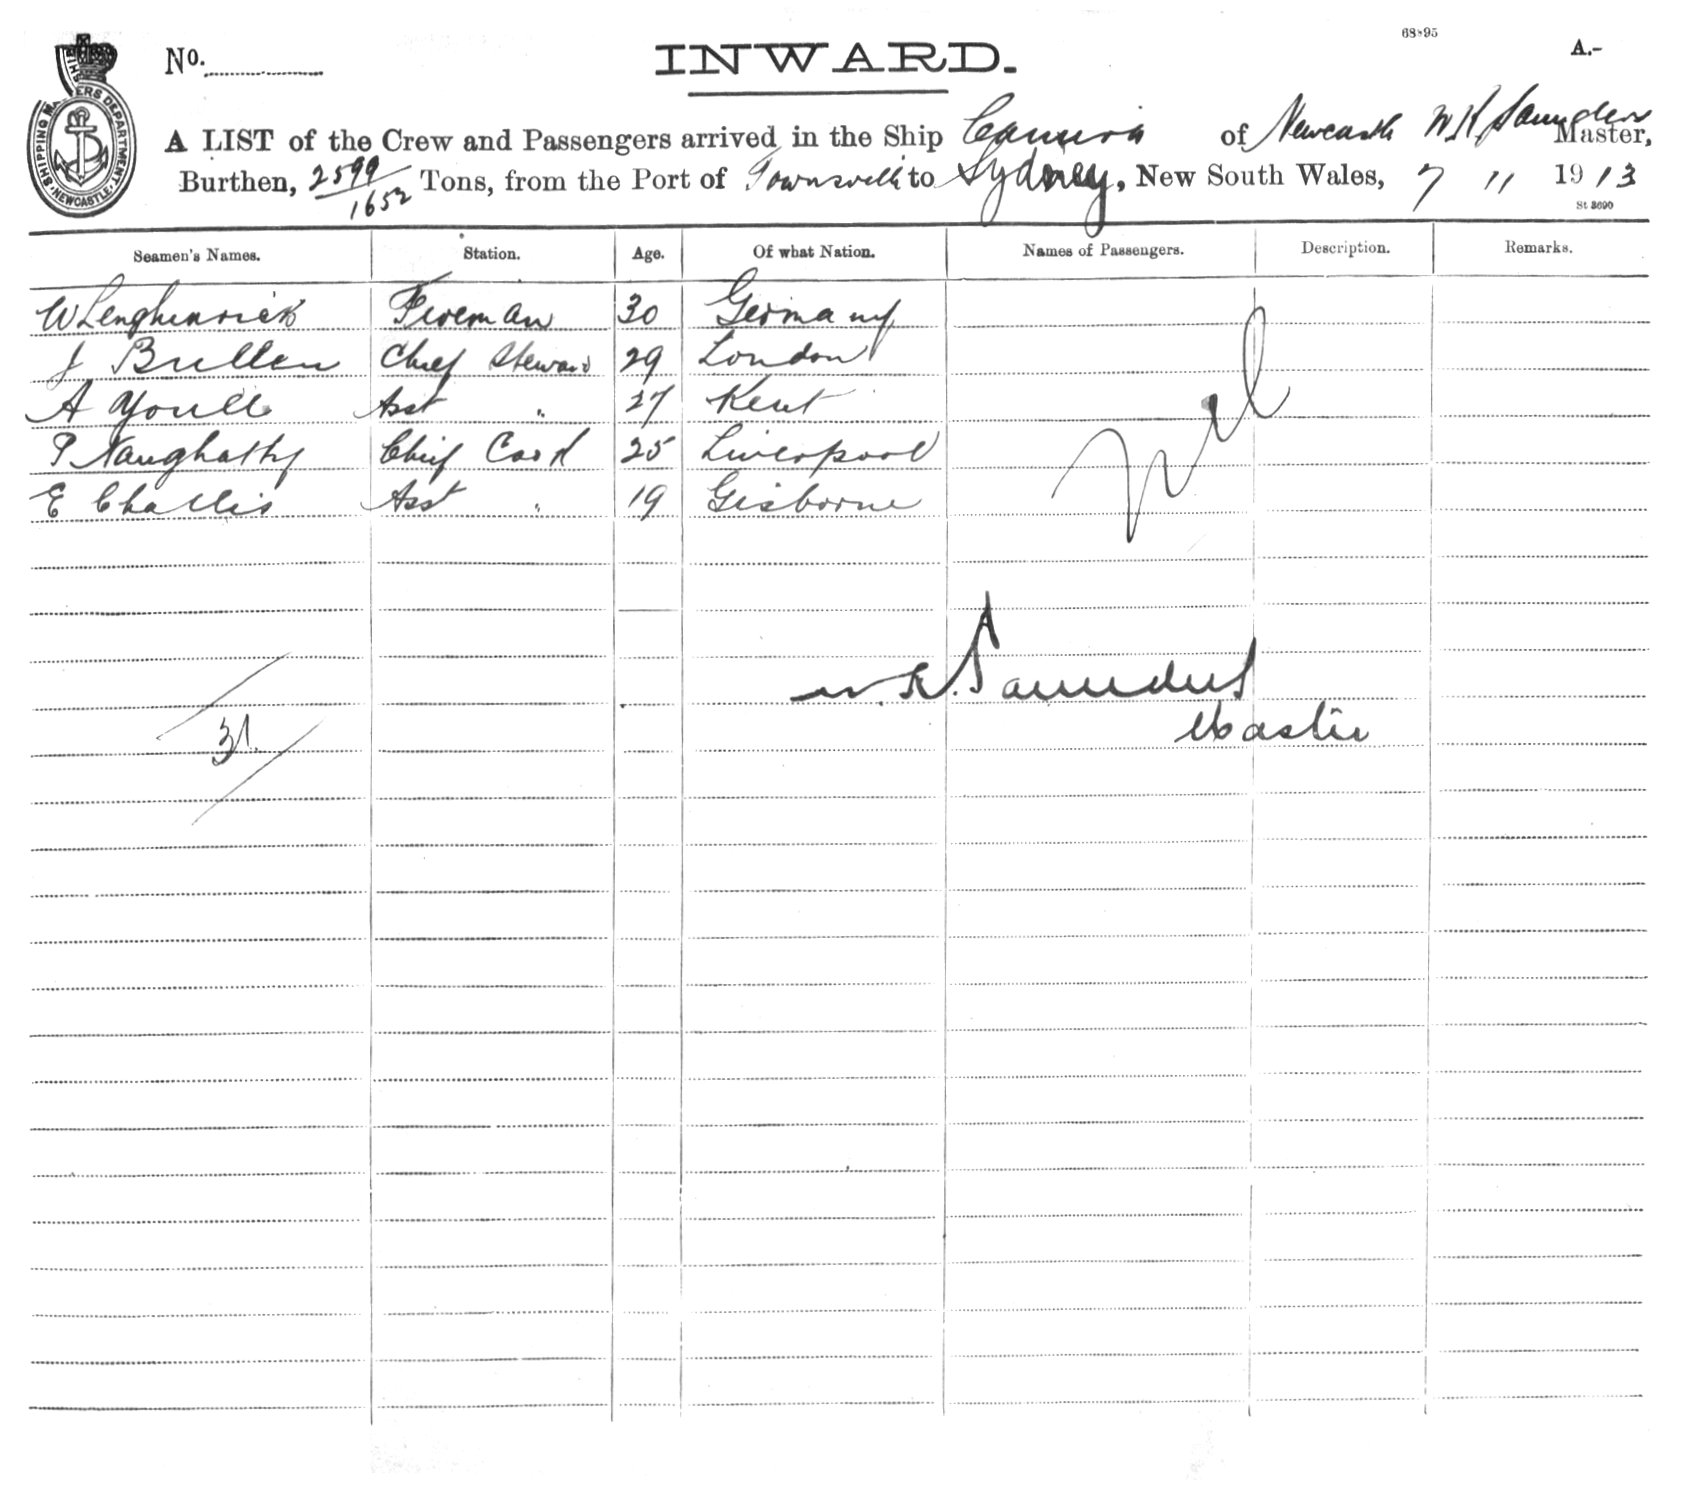 68-95
A.-
No.
INWARD.
SHIPPING MASTERS DEPARTMENT
NEWCASTLE
A LIST of the Crew and Passengers arrived in the Ship of Newcastle W. K. Saunders Master,
Burthen, 2599/1652 Tons, from the Port of Townsville to Sydney, New South Wales, 7 11 1913
St 3690
Seamen's Names. Station. Age. Of what Nation. Names of Passengers. Description. Remarks.
Fireman 30 Germany
J Bullen Chief Steward 29 London
A Youll Asst " 27 Kent
P Naughalty Chief Cook 25 Liverpool
E Challis Asst " 19 Gisborne
Nil
W K. Saunders
Master
31